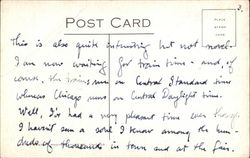 2.
POST CARD
This is also quite interesting but not novel.
I am now waiting for train time - and, of
course, the trains run on Central Standard time
whereas Chicago runs on Central Daylight time.
Well, I've had a very pleasant time even though
I haven't seen a soul I know among the hun-
dreds of thousands in town and at the fair.